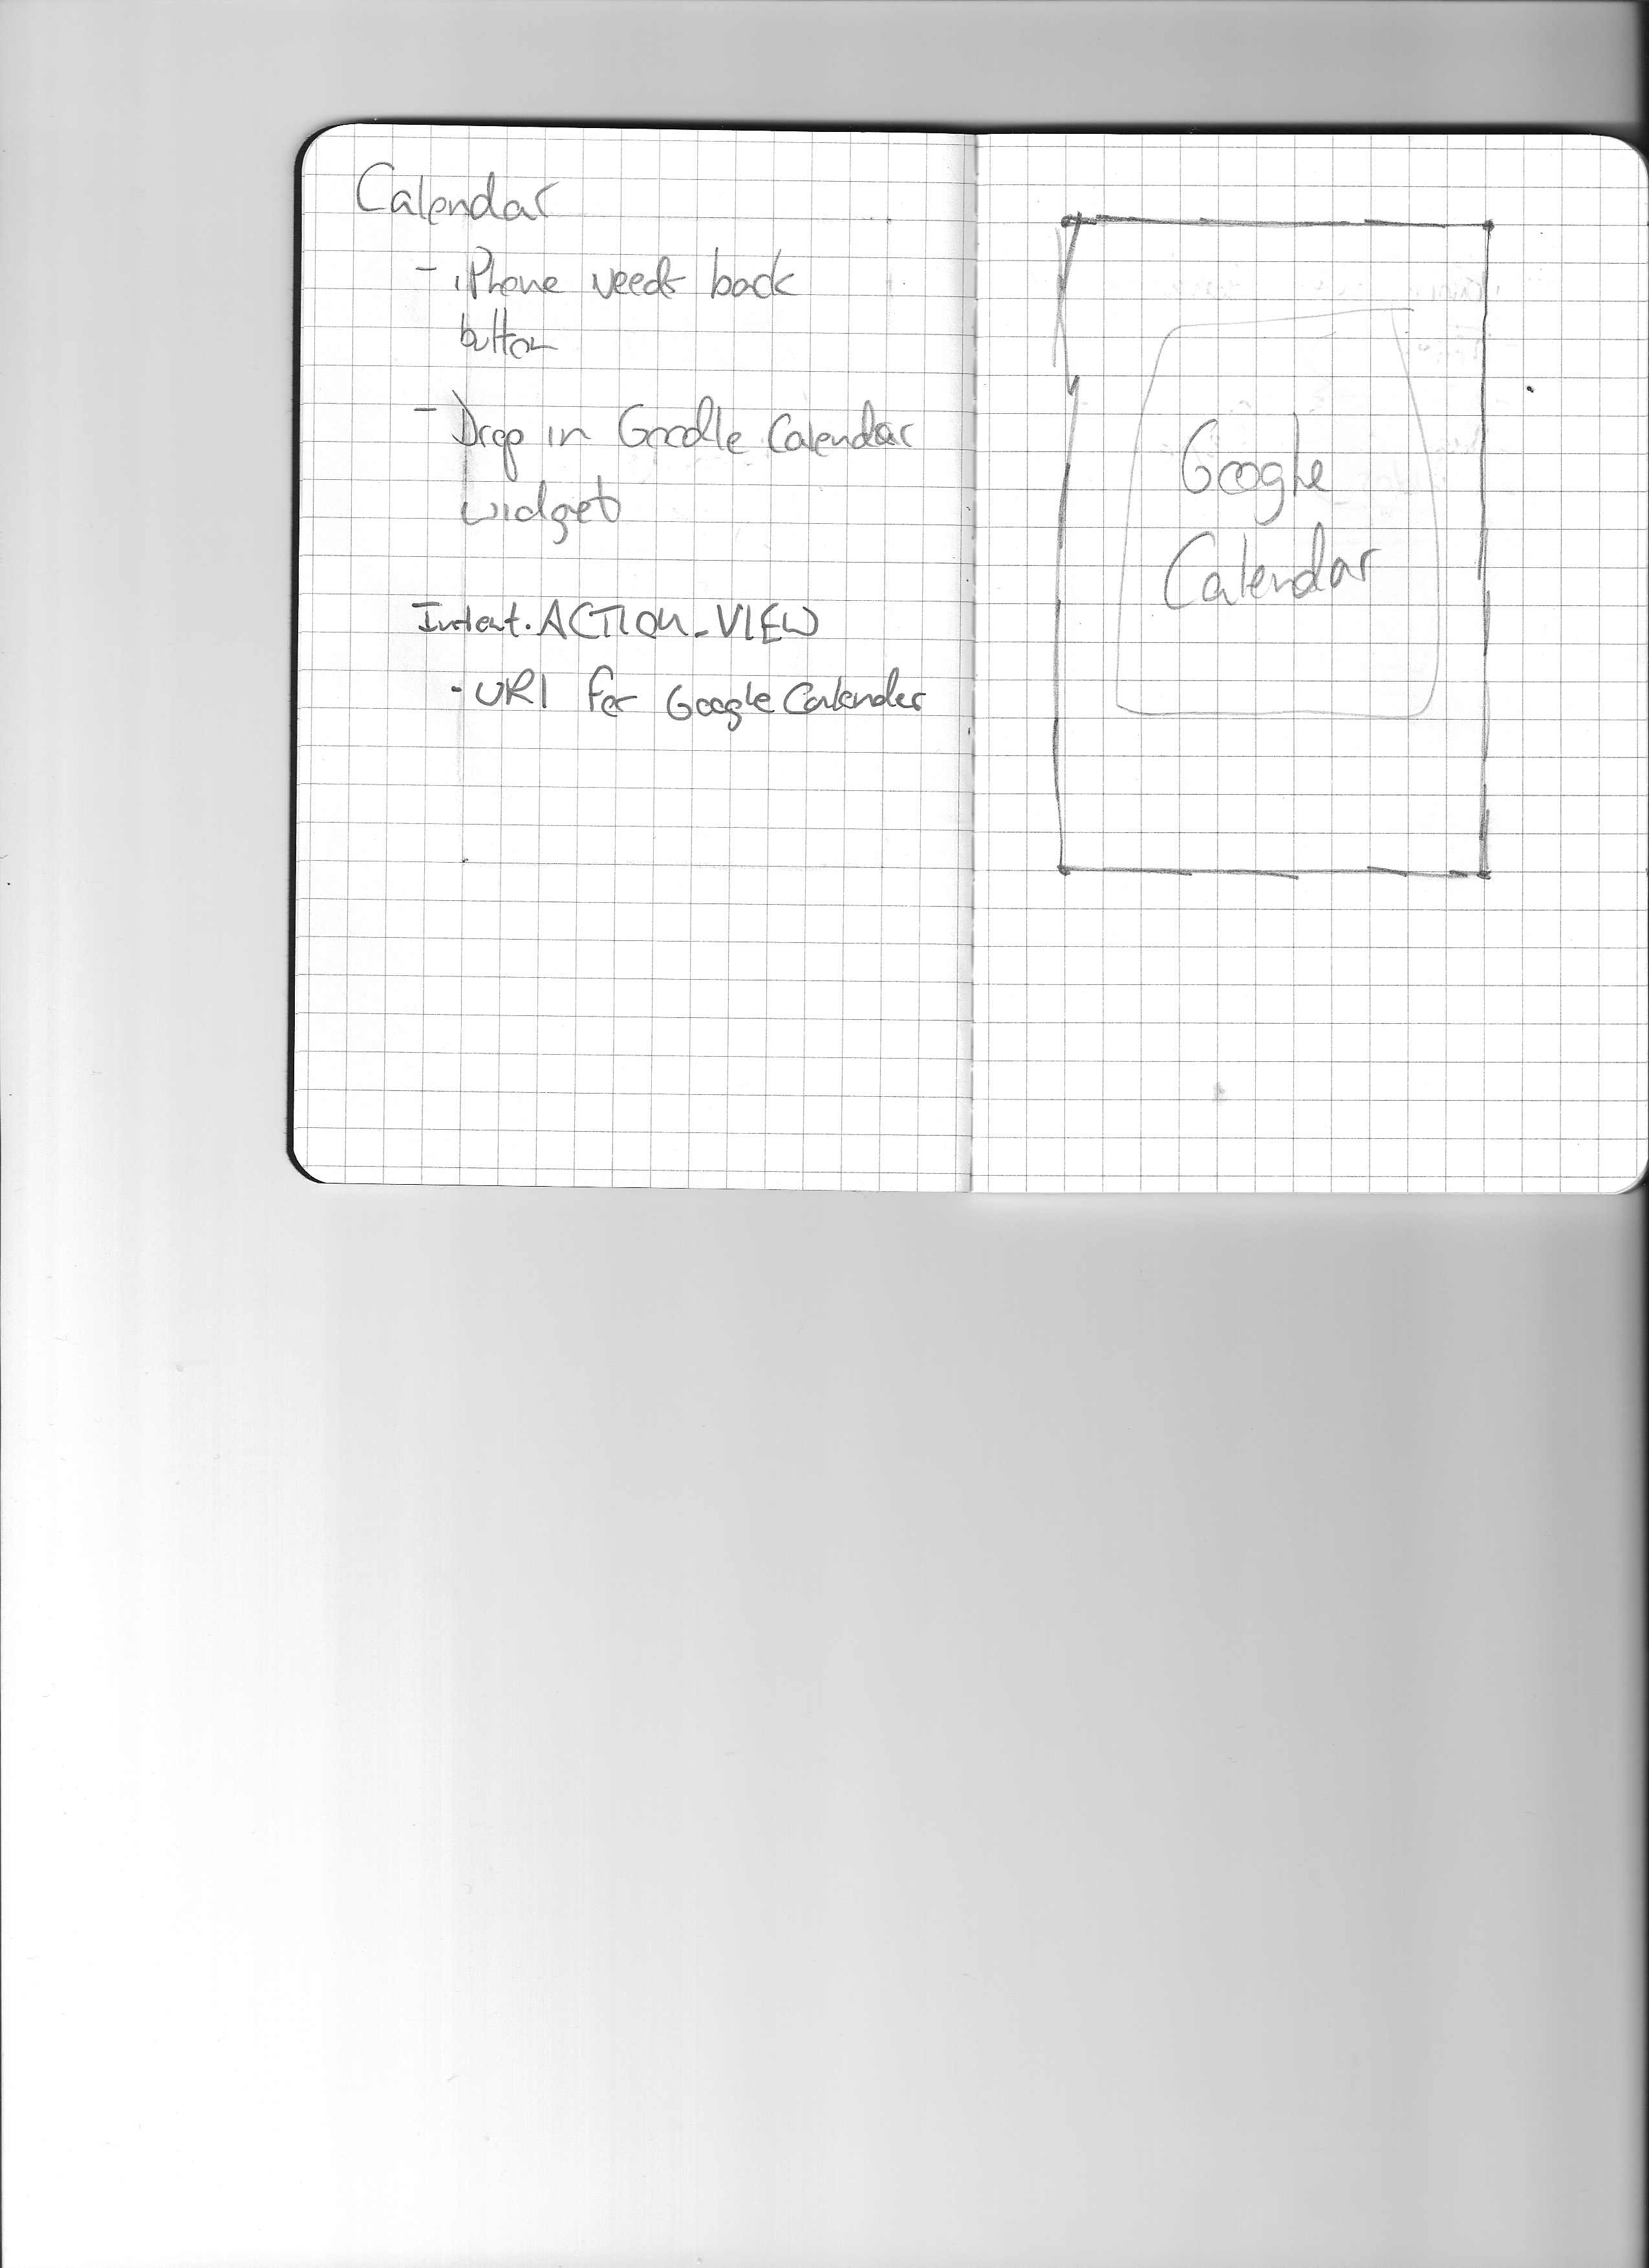 Calendar
- iPhone needs back
button
- Drop in Goodle Calendar
widget
Intent.ACTION_VIEW
· URI for Google Calender
Google
Calendar